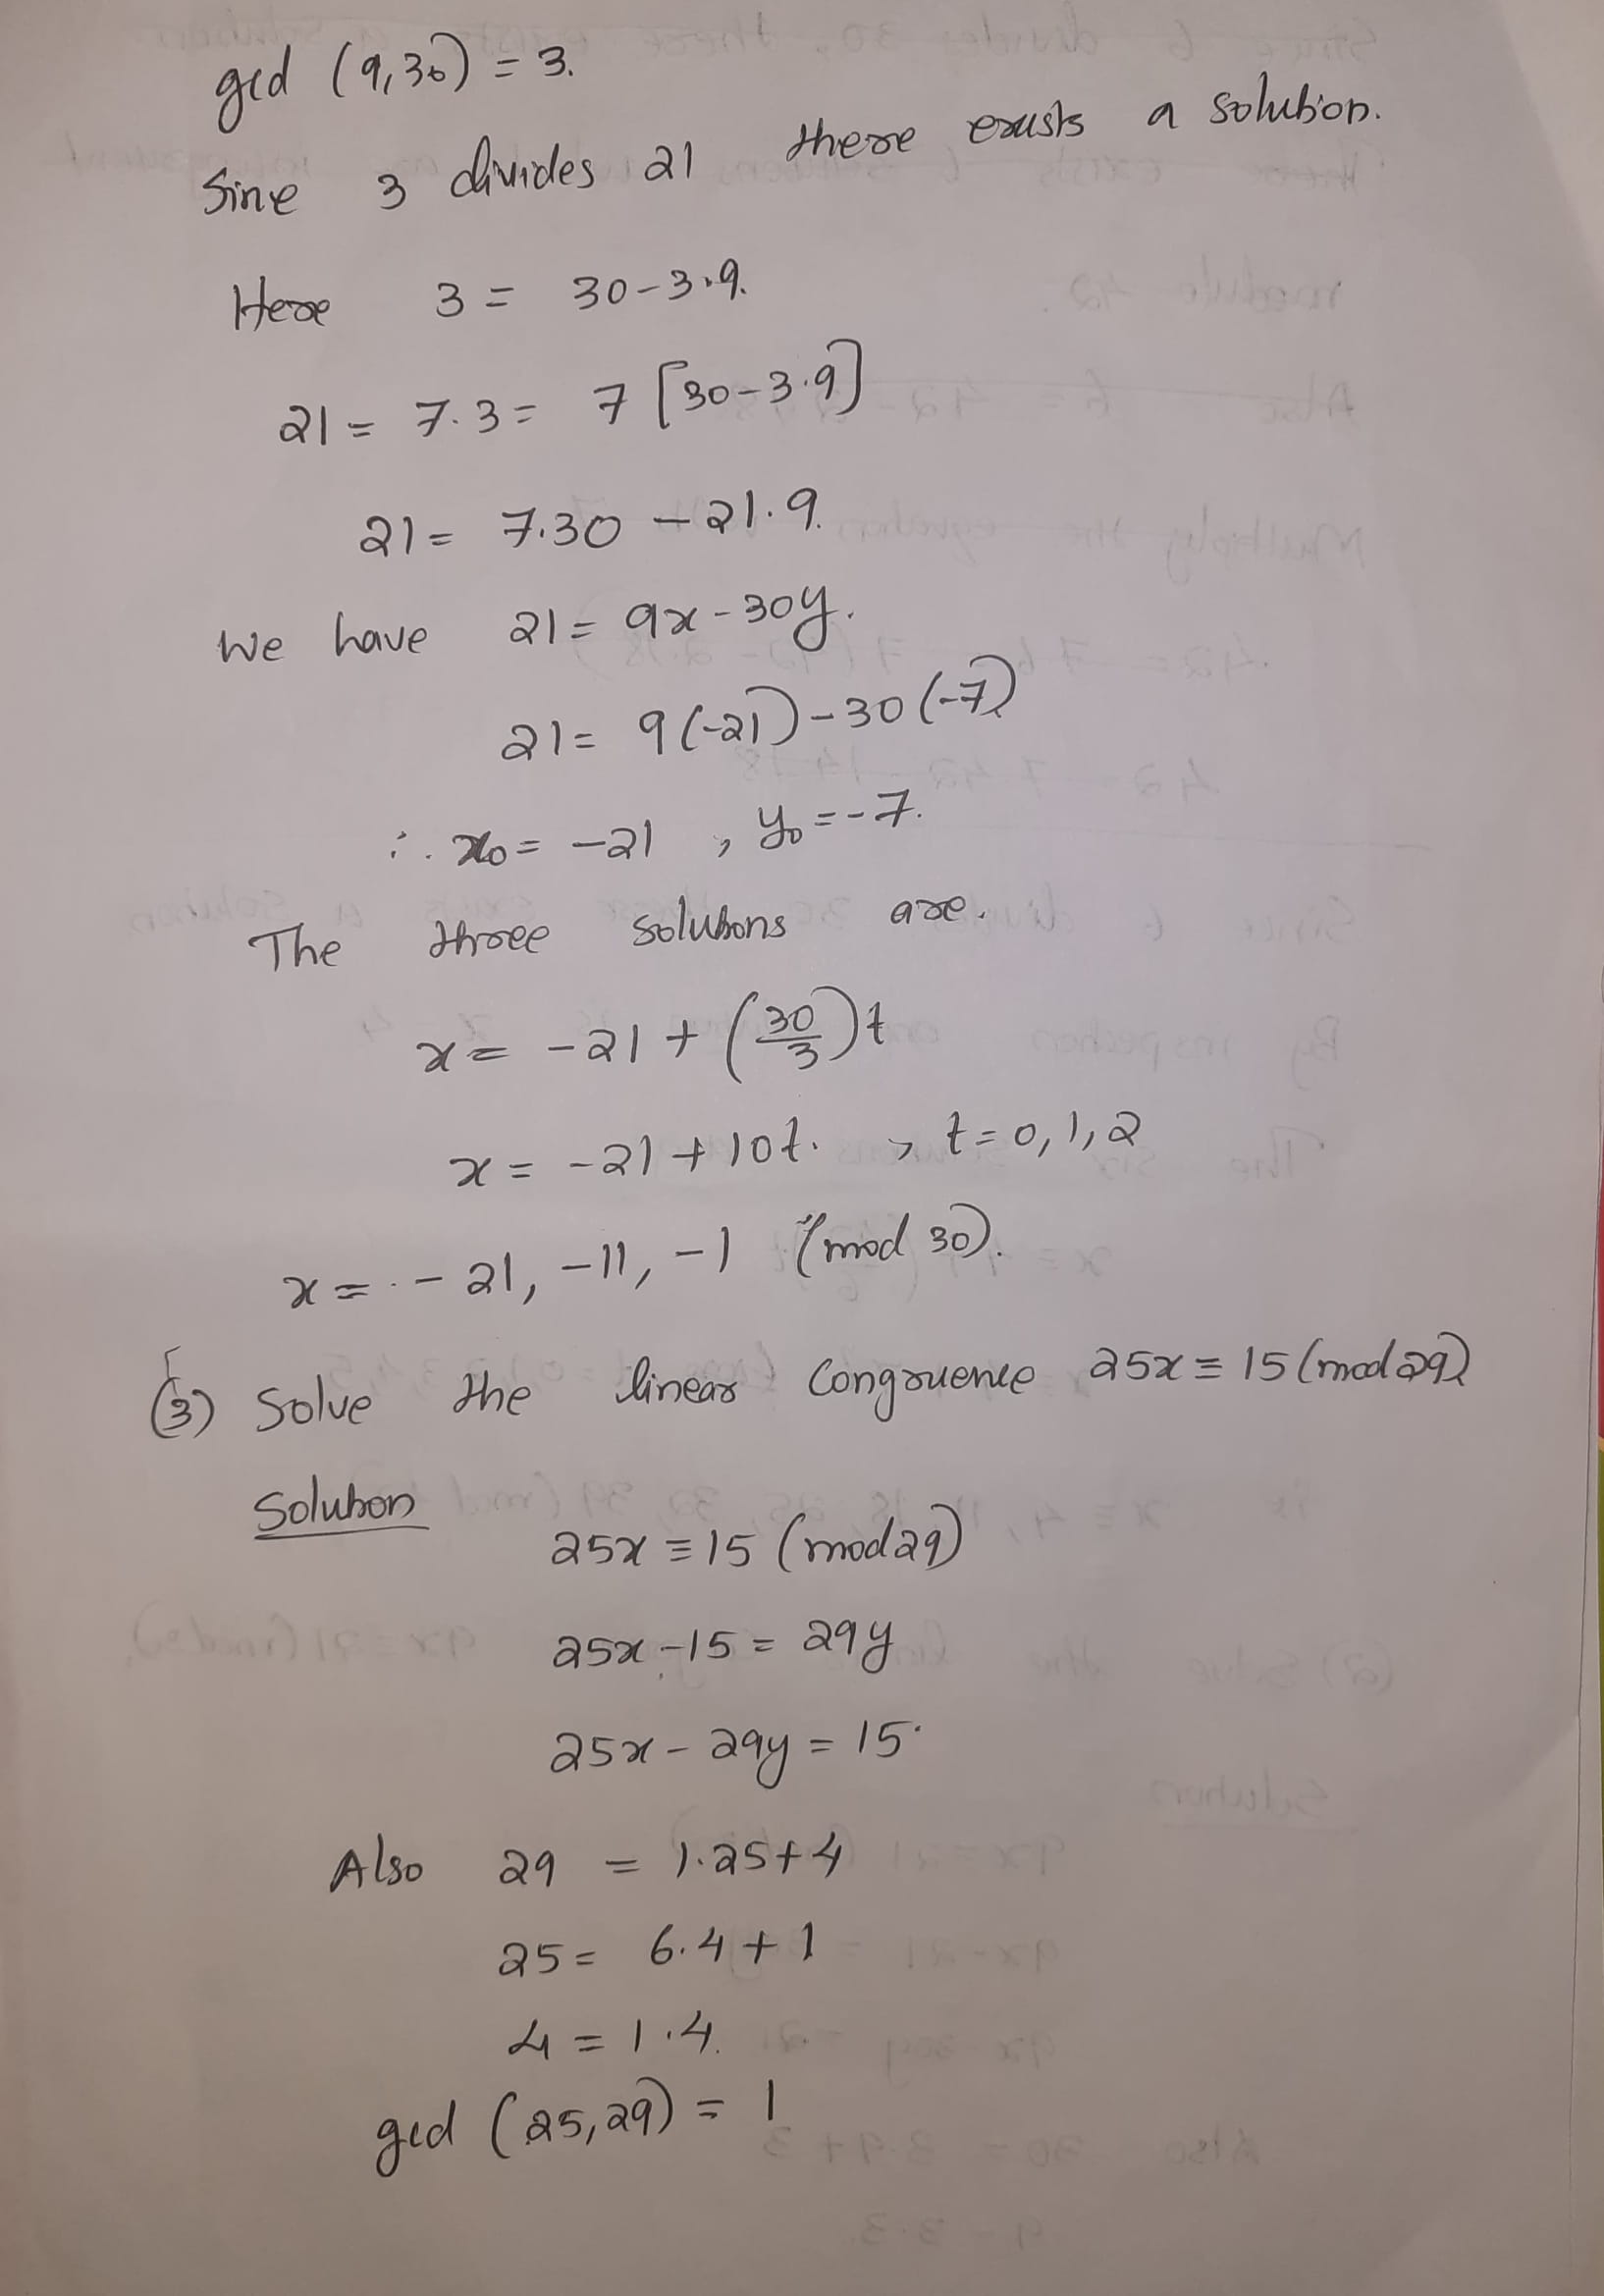 gcd (9,30) = 3.
Sine 3 divides 21 there exists a solution.
Here 3 = 30-3.9.
21 = 7.3 = 7 [30-3.9]
21 = 7.30 - 21.9.
We have 21 = 9x - 30y.
21 = 9(-21) - 30(-7)
∴ x₀ = -21 , y₀ = -7.
The three solutions are.
x = -21 + (30/3)t
x = -21 + 10t. , t = 0, 1, 2
x = -21, -11, -1 (mod 30).
(3) Solve the linear Congruence 25x ≡ 15 (mod 29)
Solution
25x ≡ 15 (mod 29)
25x - 15 = 29y
25x - 29y = 15.
Also 29 = 1.25 + 4
25 = 6.4 + 1
4 = 1.4.
gcd (25,29) = 1